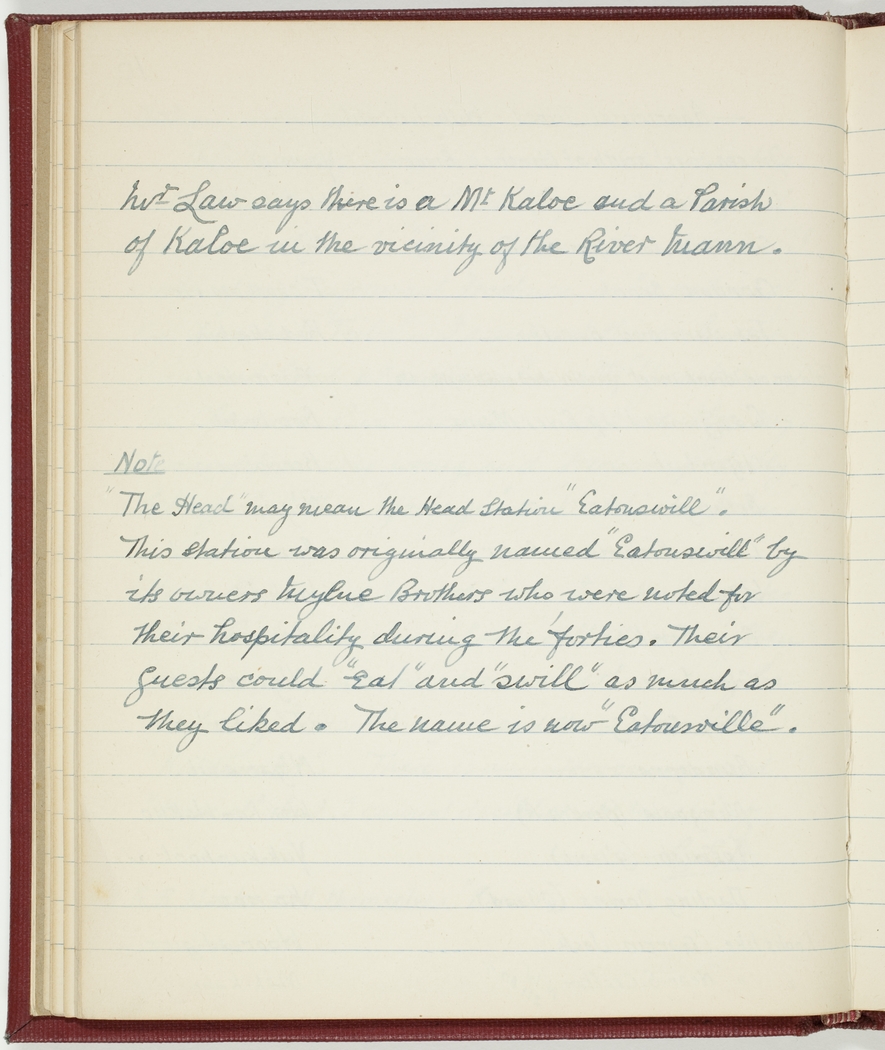 Mr Law says there is a Mt Kaloe and a Parish
of Kaloe in the vicinity of the River Mann.
Note
"The Head" may mean the Head Station "Eatonswill".
This station was originally named "Eatonswill" by
its owners Mylne Brothers who were noted for
their hospitality during the 'forties. Their
guests could "Eat" and "swill" as much as
they liked. The name is now "Eatonsville".